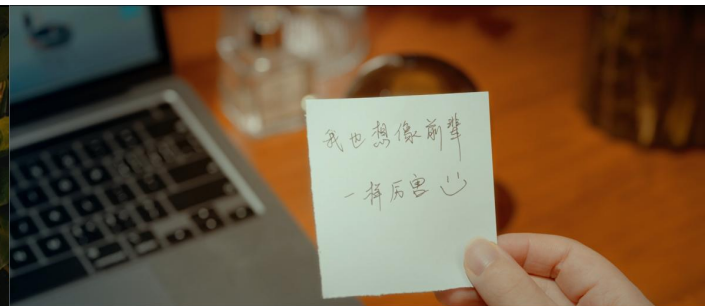 我也想像前辈
一样厉害